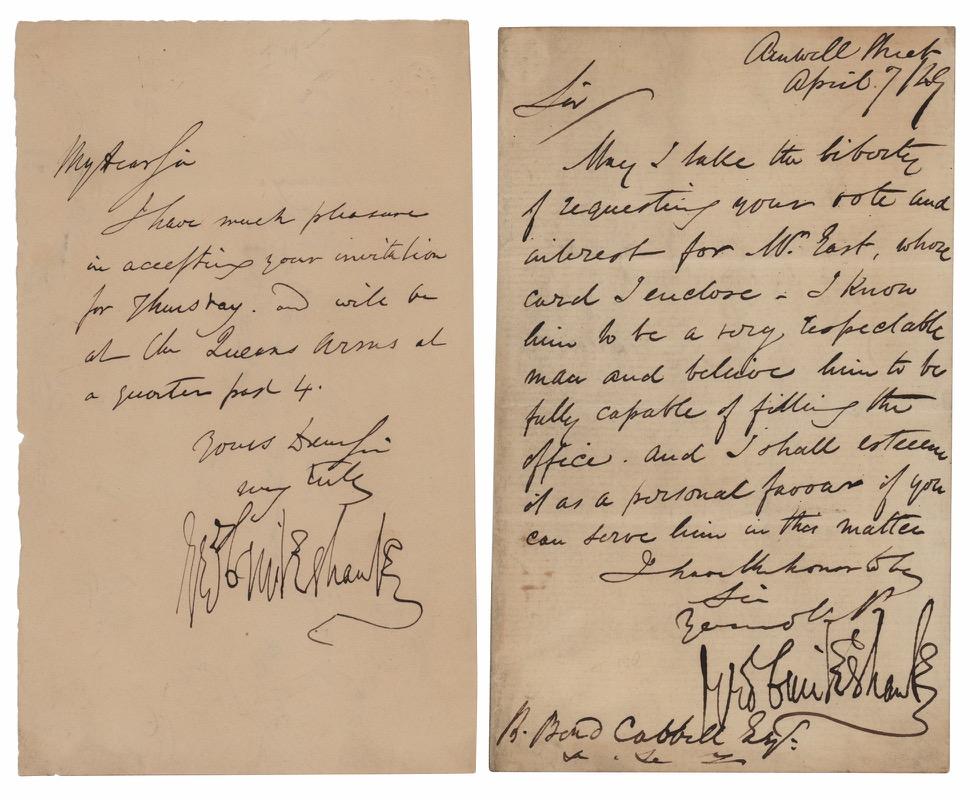 My dear Sir
I have much pleasure
in accepting your invitation
for Thursday. and will be
at the Queens Arms at
a quarter past 4.
Yours Dear Sir
very truly
Geo Cruikshank
Amwell Street
April 7/49
Sir
May I take the liberty
of requesting your vote and
interest for Mr. East, whose
card I enclose - I know
him to be a very respectable
man and believe him to be
fully capable of filling the
office. and I shall esteem
it as a personal favour if you
can serve him in this matter
I have the honor to be
Sir
Geo Cruikshank
B. Bond Cabbell Esqr.